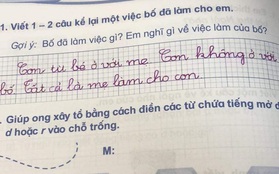 1. Viết 1 – 2 câu kể lại một việc bố đã làm cho em.
Gợi ý: Bố đã làm việc gì? Em nghĩ gì về việc làm của bố?
Con từ bé ở với mẹ. Con không ở với
bố. Tất cả là mẹ làm cho con.
. Giúp ong xây tổ bằng cách điền các từ chứa tiếng mở đ
d hoặc r vào chỗ trống.
M: